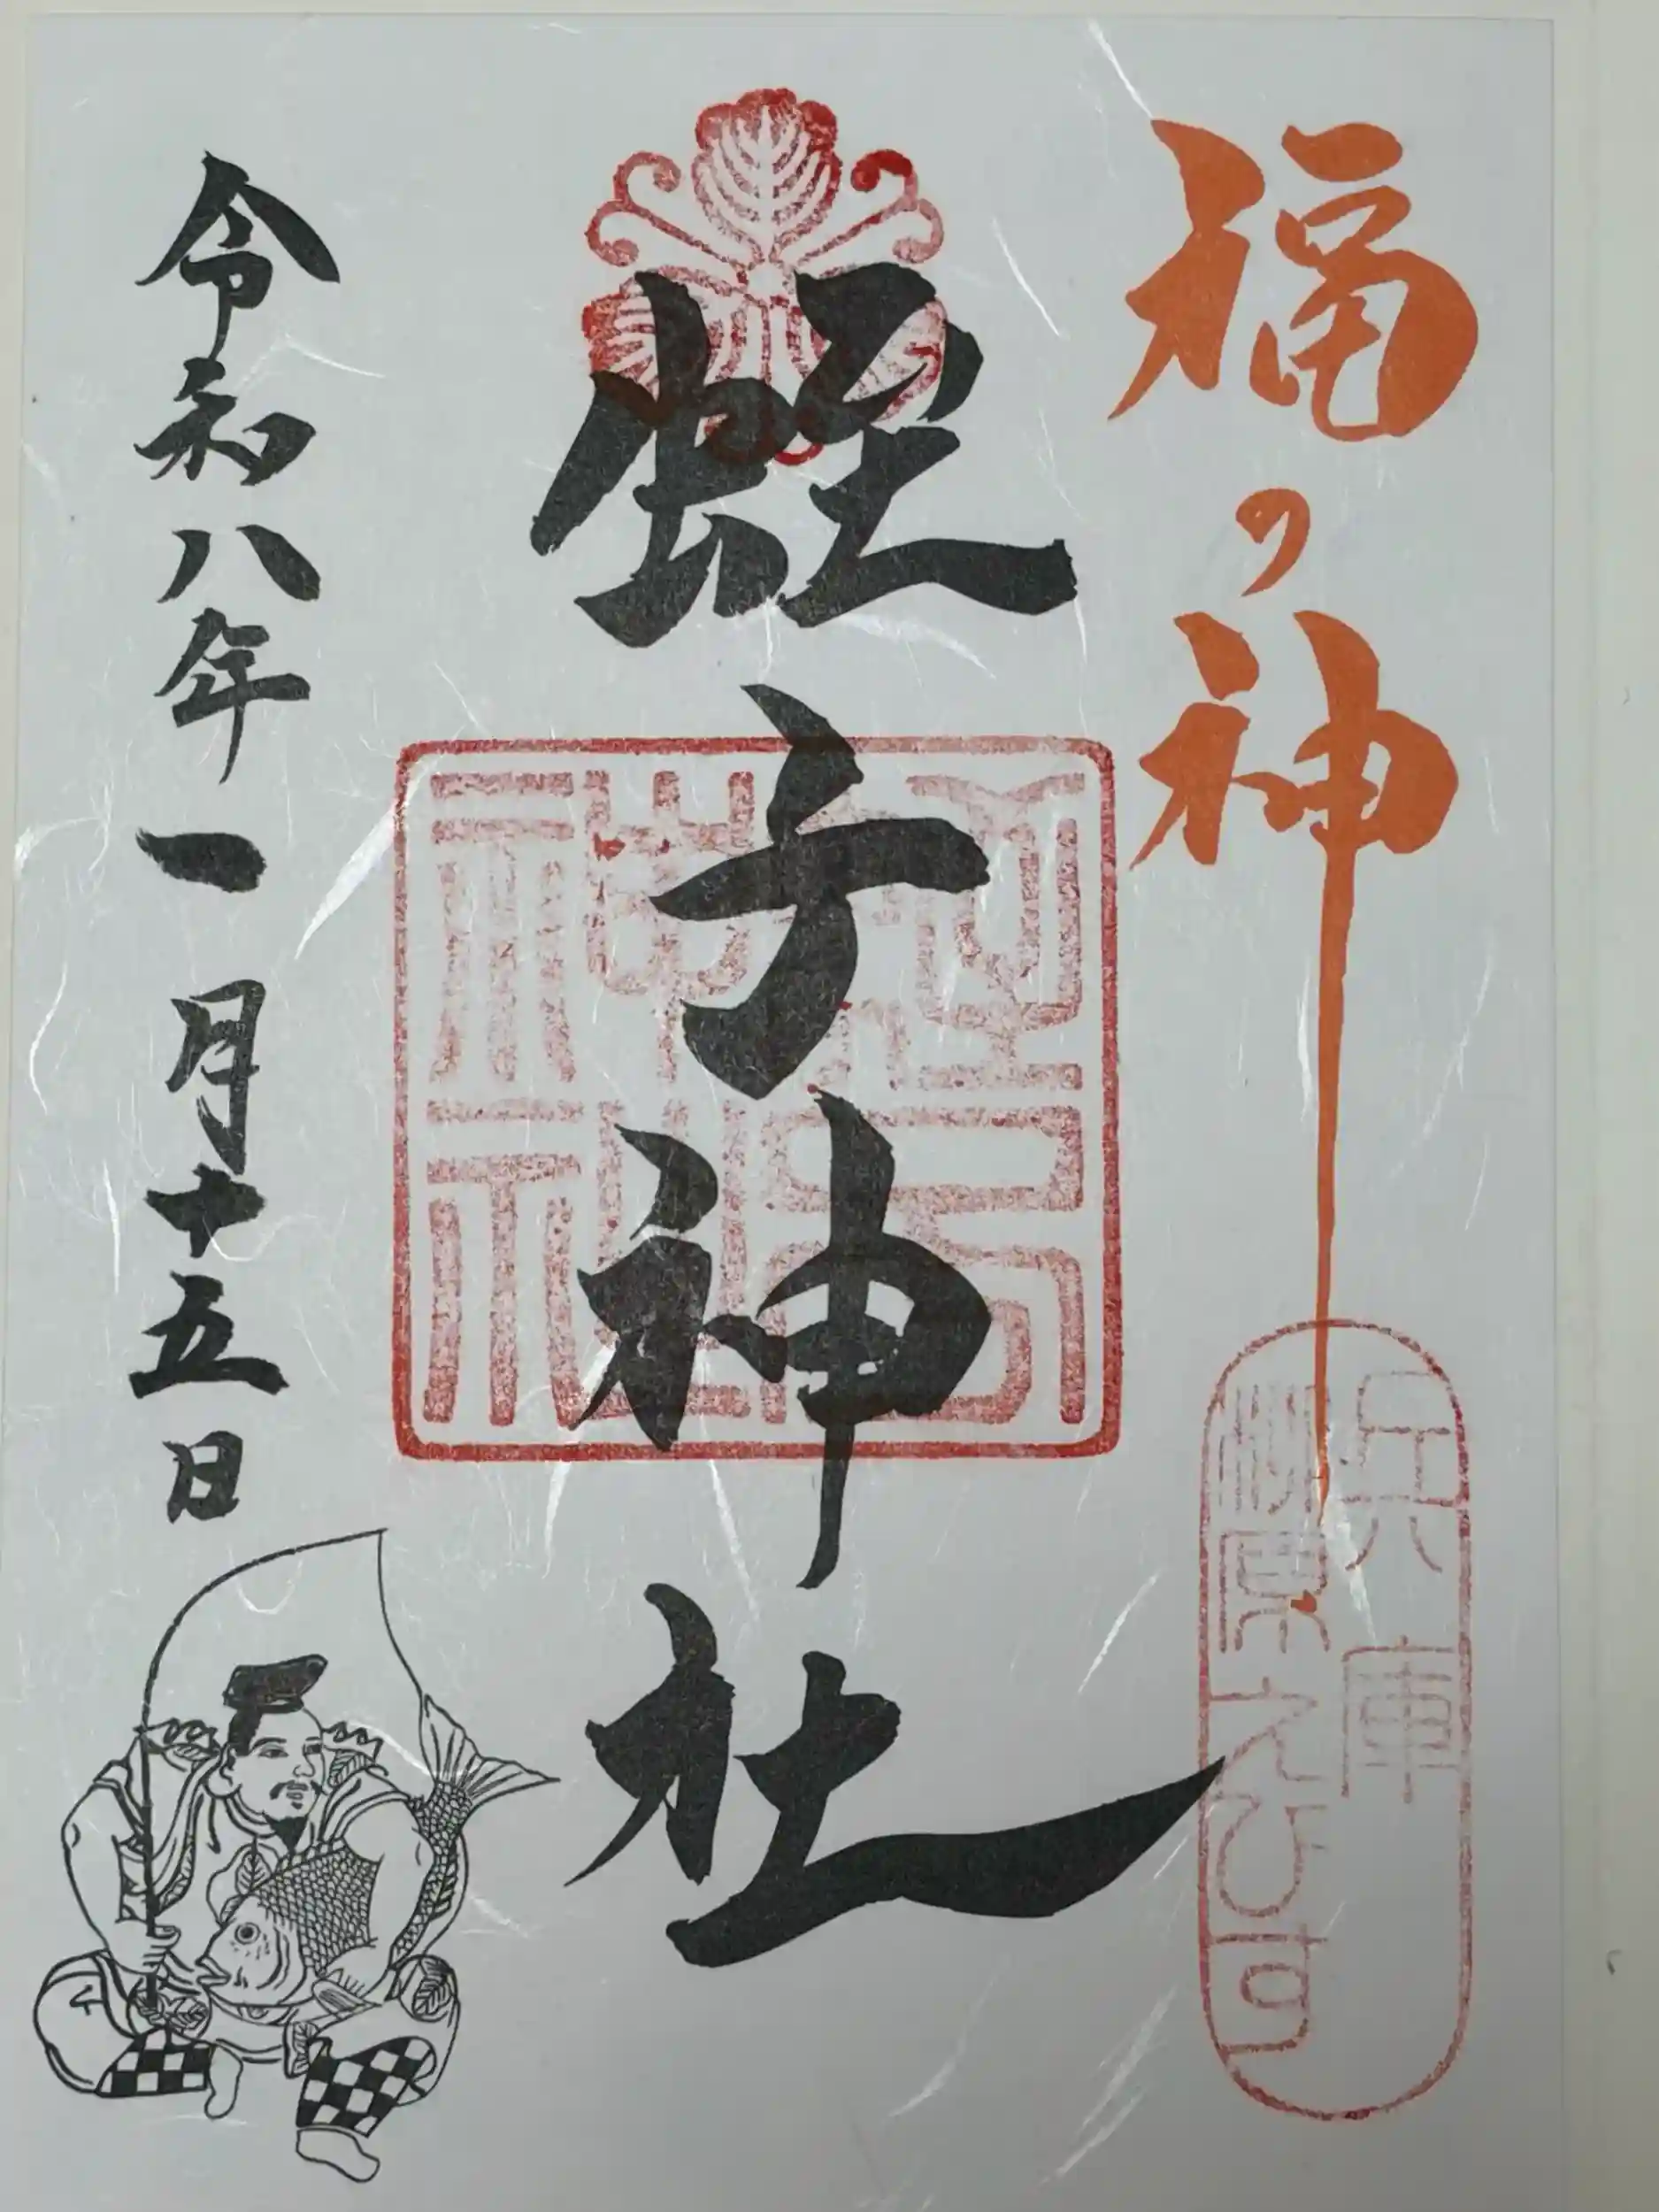 福の神
兵庫
柳原えびす
蛭子神社
蛭子神社
令和八年一月十五日